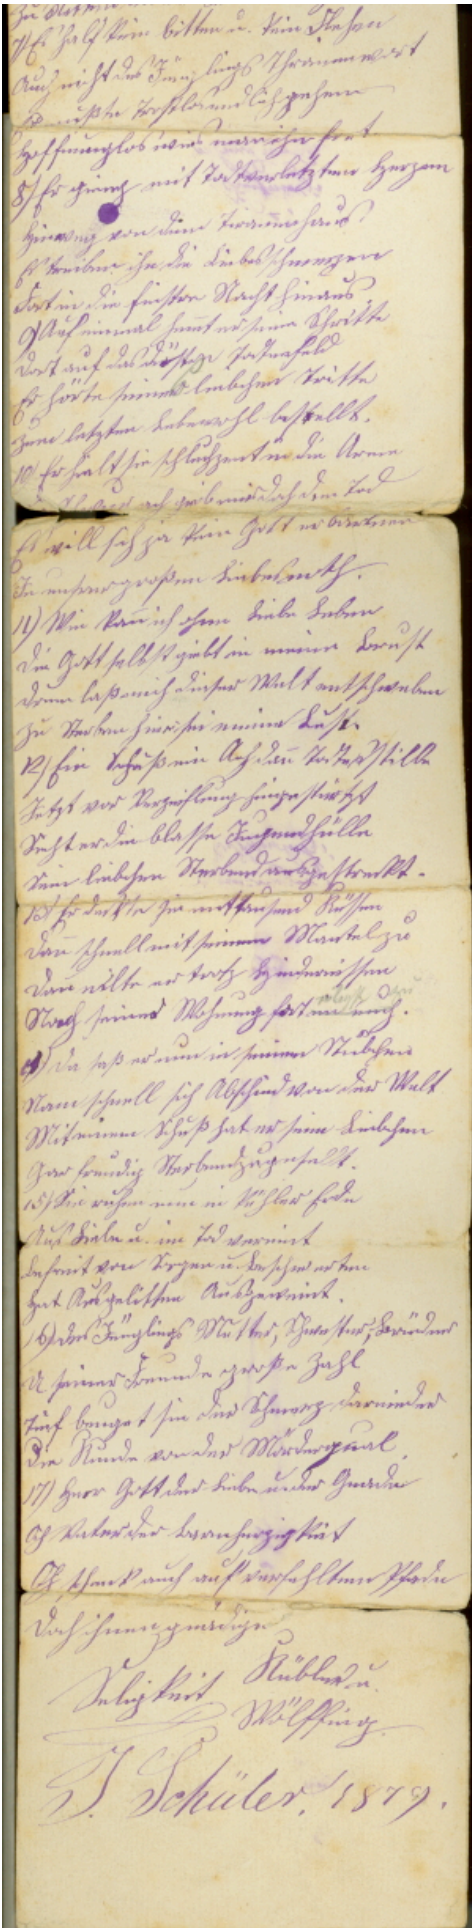 7) Es half kein bitten u. kein Flehen
Auch nicht des Jünglings Thränenwort
Er mußte trostlos endlich gehen
Hoffnungslos wies man ihn fort
8) Er gieng mit Todtverletzten Herzen
Hinweg von dem Tirannehaus
Es treiben ihn die Liebesschmerzen
Fort in die finstre Nacht hinaus
9) Auf einmal hemt er seine Schritte
Dort auf das düstere Todtenfeld
Er hörte seines liebchen Tritte
zum letzten Lebewohl bestellt.
10) Er hält sie schluchzent in die Arme
ach gieb mir doch den Tod
Es will sich ja kein Gott erbarmen
In unsrer großen Liebesnoth.
11) Wie kann ich ohne Liebe Leben
Die Gott selbst giebt in meine Brust
Drum laß mich dieser Welt entschweben
Zu Sterben hier sei meine Lust.
12) Ein Schuß ein Ach dann Todesstille
Jetzt vor Verzweiflung hingestürtzt
Sieht er die blasse Jugendhülle
Sein liebchen Sterbend ausgestreckt.
13) Er deckte sie mit tausend Küssen
Dann schnell mit seinem Mantel zu
Dann eilte er trotz Hindernissen
Nach seiner Wohnung fort
14) Da saß er nun in seinem Stübchen
Nam schnell sich Abschied von der Welt
Mit einem Schuß hat er seim Liebchen
Gar freudig Sterbend zugesellt.
15) Sie ruhen nun in kühler Erde
Auf Liebe u. im Tod vereint
Befreit von Sorgen u. Beschwerten
Hat Ausgelitten Ausgeweint.
16) des Jünglings Mutter, Schwester, Brüder
U seiner Freunde große Zahl
Tief beuget sie der Schmerz darnieder
Die Kunde von der Mörderqual
17) Herr Gott der Liebe u der Gnade
Ach Vater der Barmherzigkeit
schenk auch auf verfehltem Pfade
Doch ihnen gnädige
Seligkeit Kübler u.
Wölffing
J. Schüler. 1879.